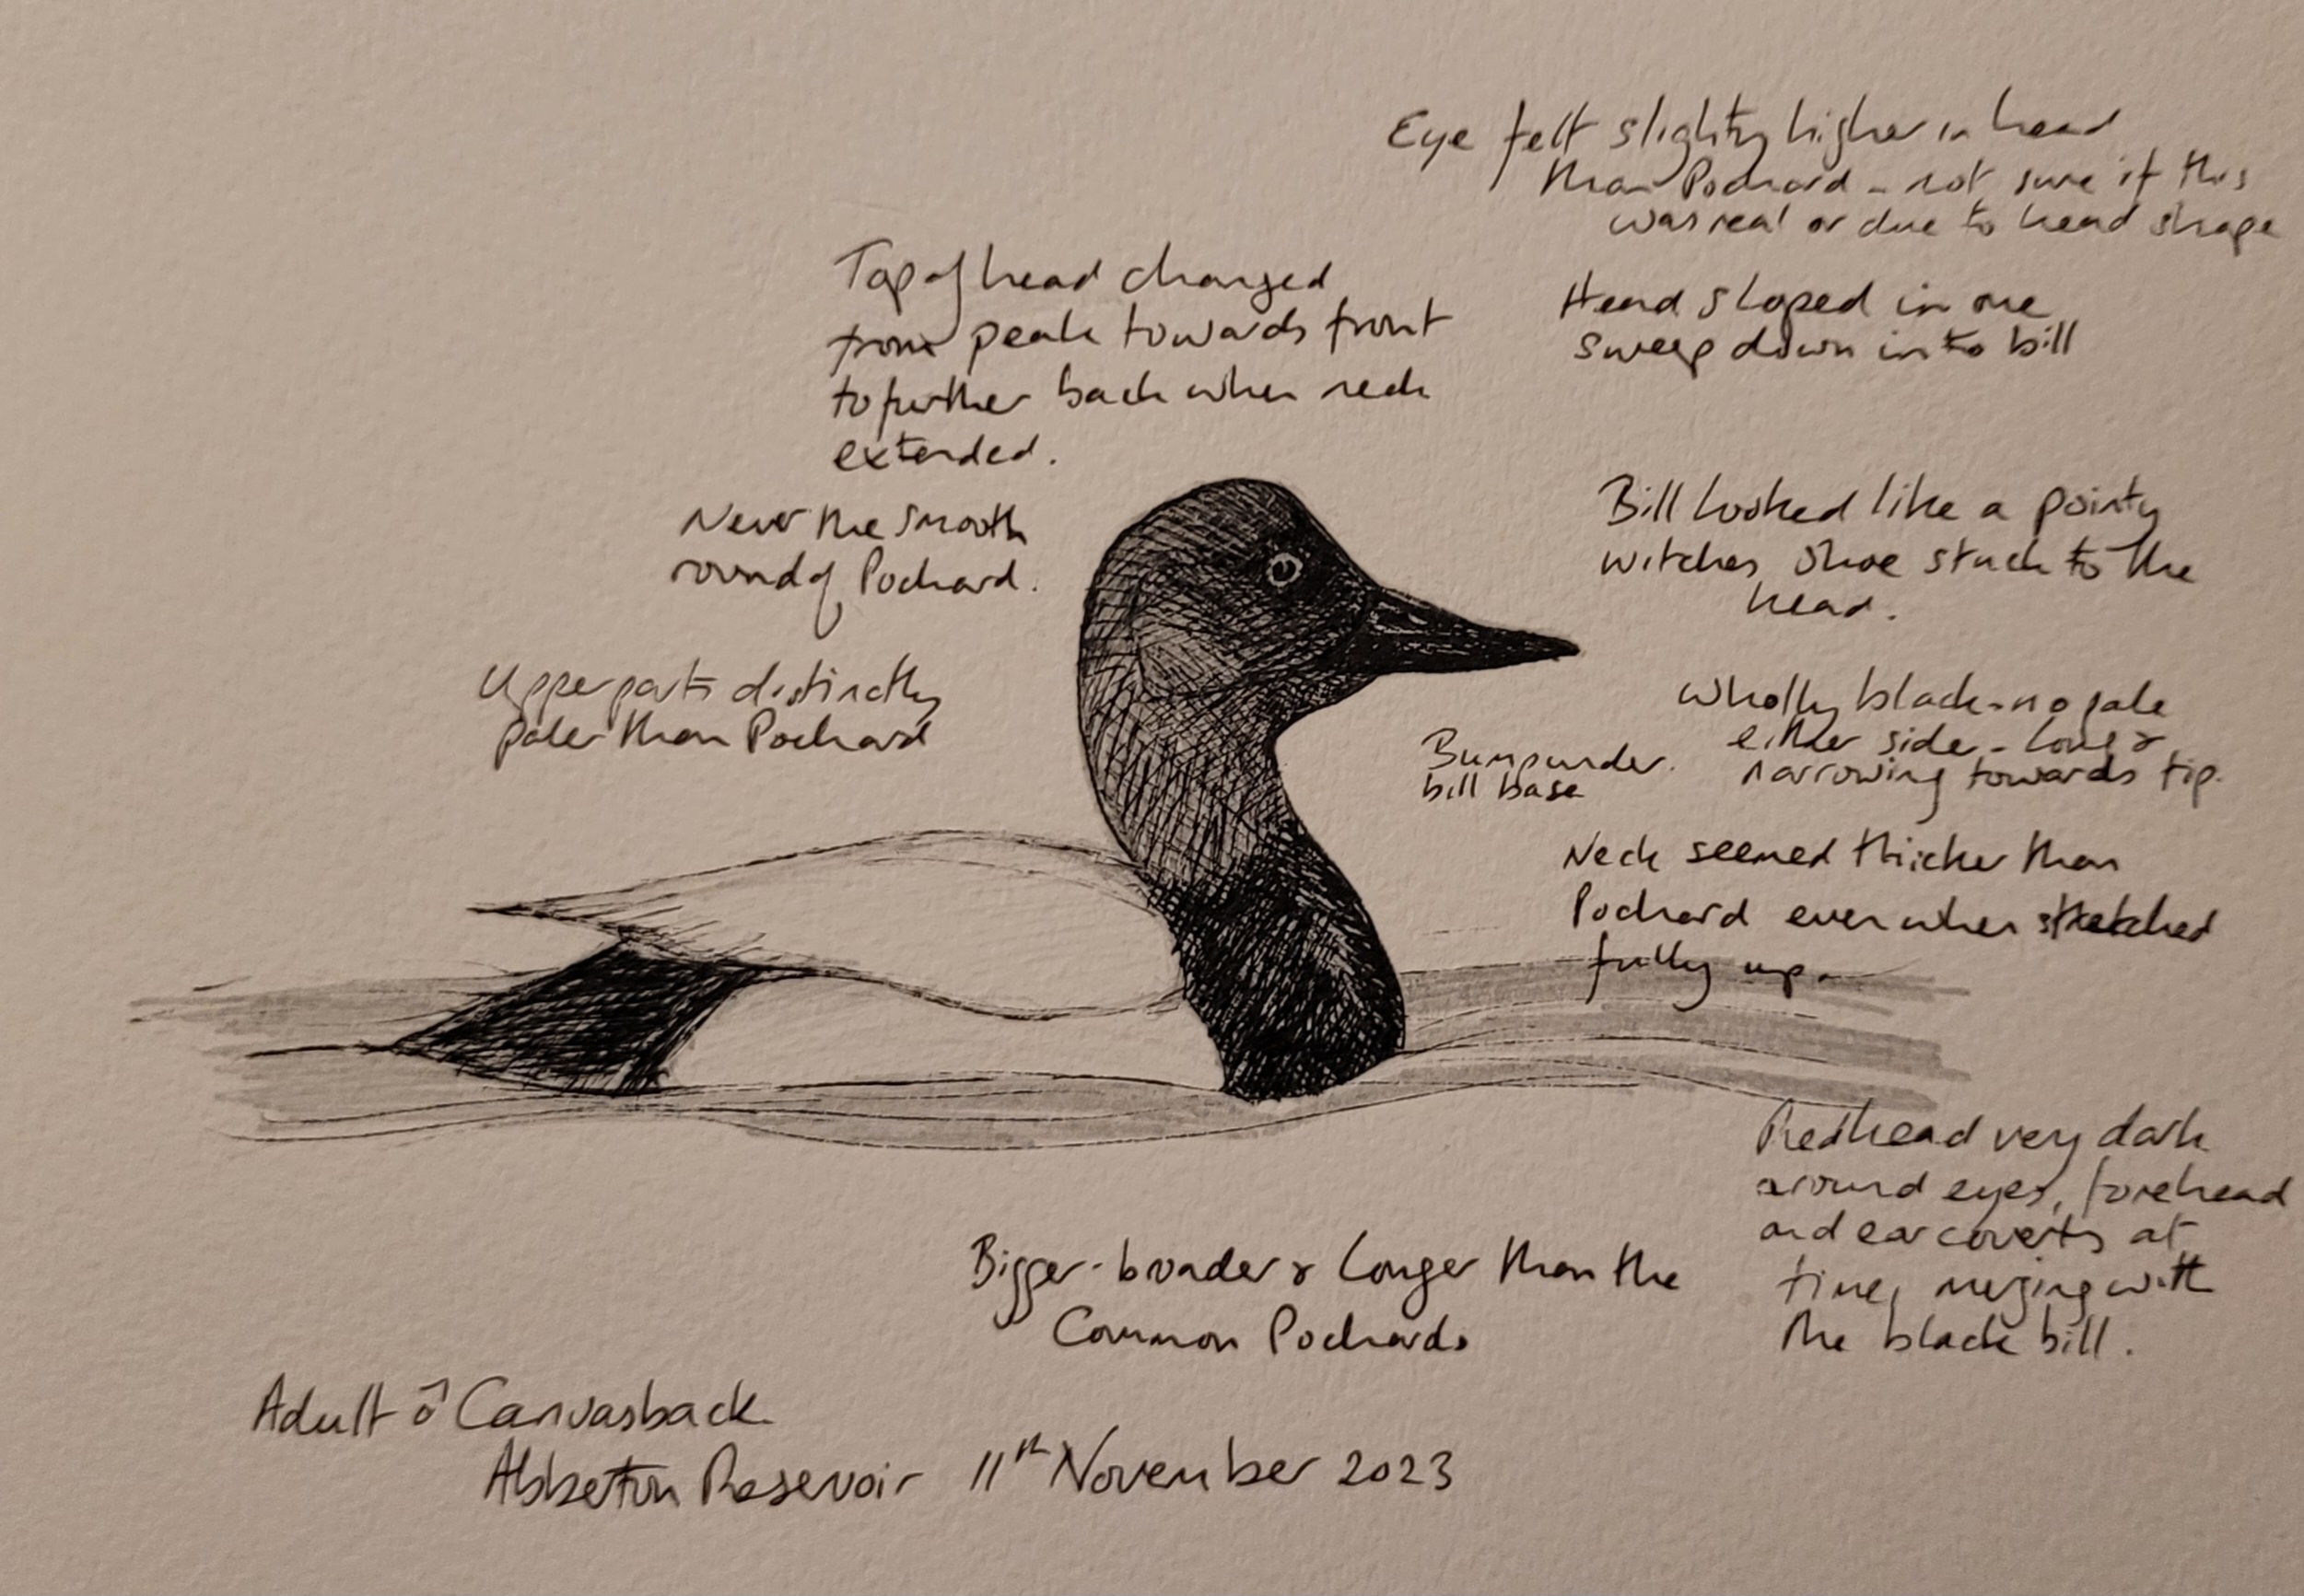 Eye felt slightly higher in head
than Pochard - not sure if this
was real or due to head shape
Top of head changed
from peak towards front
to further back when neck
extended.
Head sloped in one
sweep down into bill
Never the smooth
round of Pochard.
Bill looked like a pointy
witches shoe stuck to the
head.
Upperparts distinctly
paler than Pochard
Wholly black - no pale
either side - long &
narrowing towards tip.
Bump under
bill base
Neck seemed thicker than
Pochard even when stretched
fully up.
Redhead very dark
around eyes, forehead
and ear coverts at
times merging with
the black bill.
Bigger - broader & longer than the
Common Pochards
Adult ♂ Canvasback
Abberton Reservoir 11th November 2023